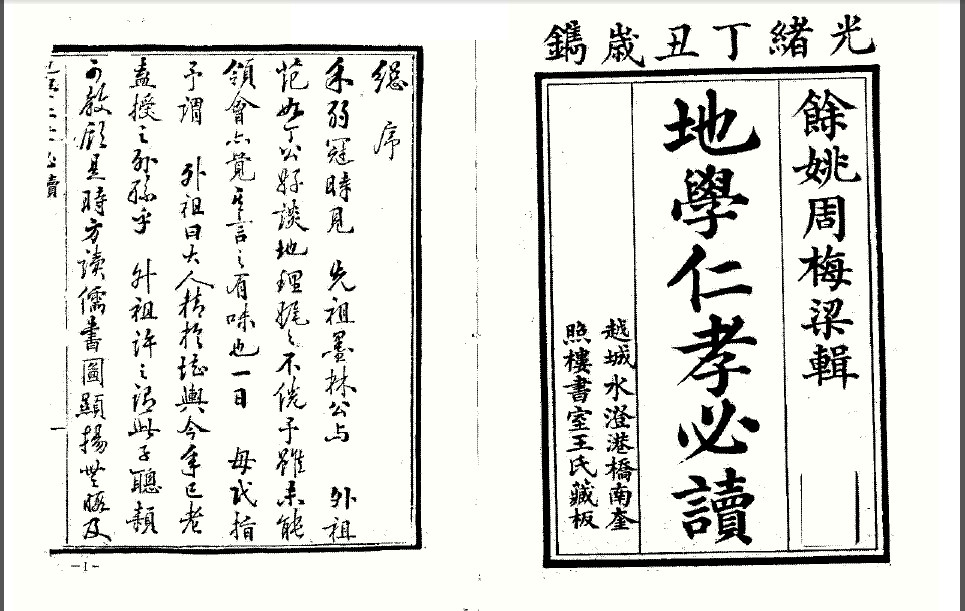 光緒丁丑歲鐫
餘姚周梅梁輯
地學仁孝必讀
越城水澄港橋南奎
照樓書室王氏藏板
總序
余弱冠時見 先祖墨林公與 外祖
范丁公好談地理娓娓不倦予雖未能
領會亦覺其言之有味也一日 母氏指
予謂 外祖曰大人精於堪輿今年已老
盍授之外孫乎 外祖許之謂此子聰穎
可教顧是時方讀儒書圖顯揚無暇及
-1-